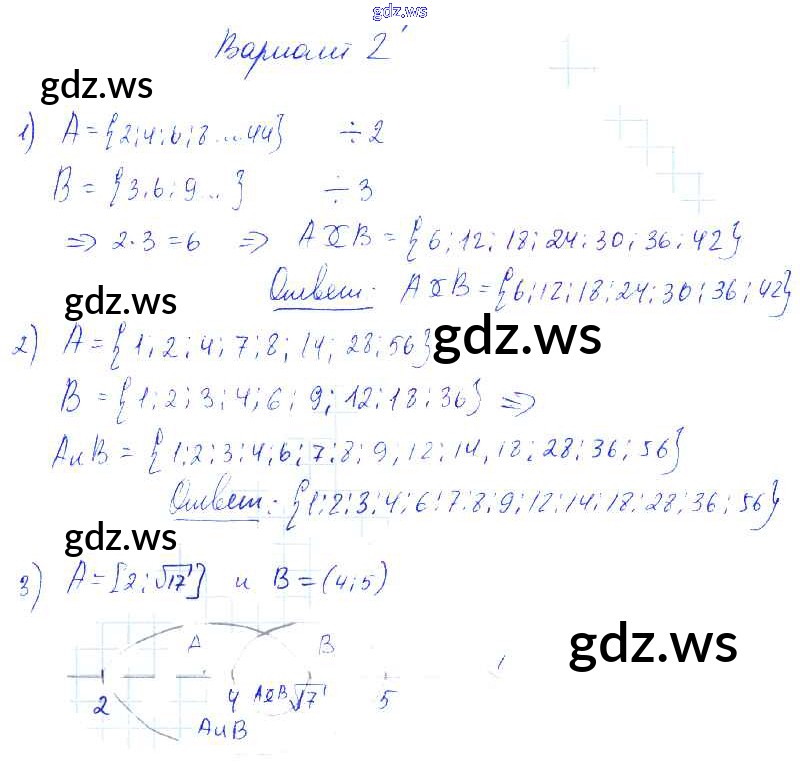 gdz.ws
Вариант 2
gdz.ws
1) A = {2; 4; 6; 8 ... 44} ÷ 2
B = {3; 6; 9 ...} ÷ 3
=> 2·3 = 6 => A и B = {6; 12; 18; 24; 30; 36; 42}
gdz.ws
Ответ: A и B = {6; 12; 18; 24; 30; 36; 42}
2) A = {1; 2; 4; 7; 8; 14; 28; 56}
gdz.ws
B = {1; 2; 3; 4; 6; 9; 12; 18; 36} =>
A и B = {1; 2; 3; 4; 6; 7; 8; 9; 12; 14, 18; 28; 36; 56}
Ответ: {1; 2; 3; 4; 6; 7; 8; 9; 12; 14; 18; 28; 36; 56}
gdz.ws
3) A = [2; √17] и B = (4; 5)
gdz.ws
A B
2 4 A и B √17 5
A и B